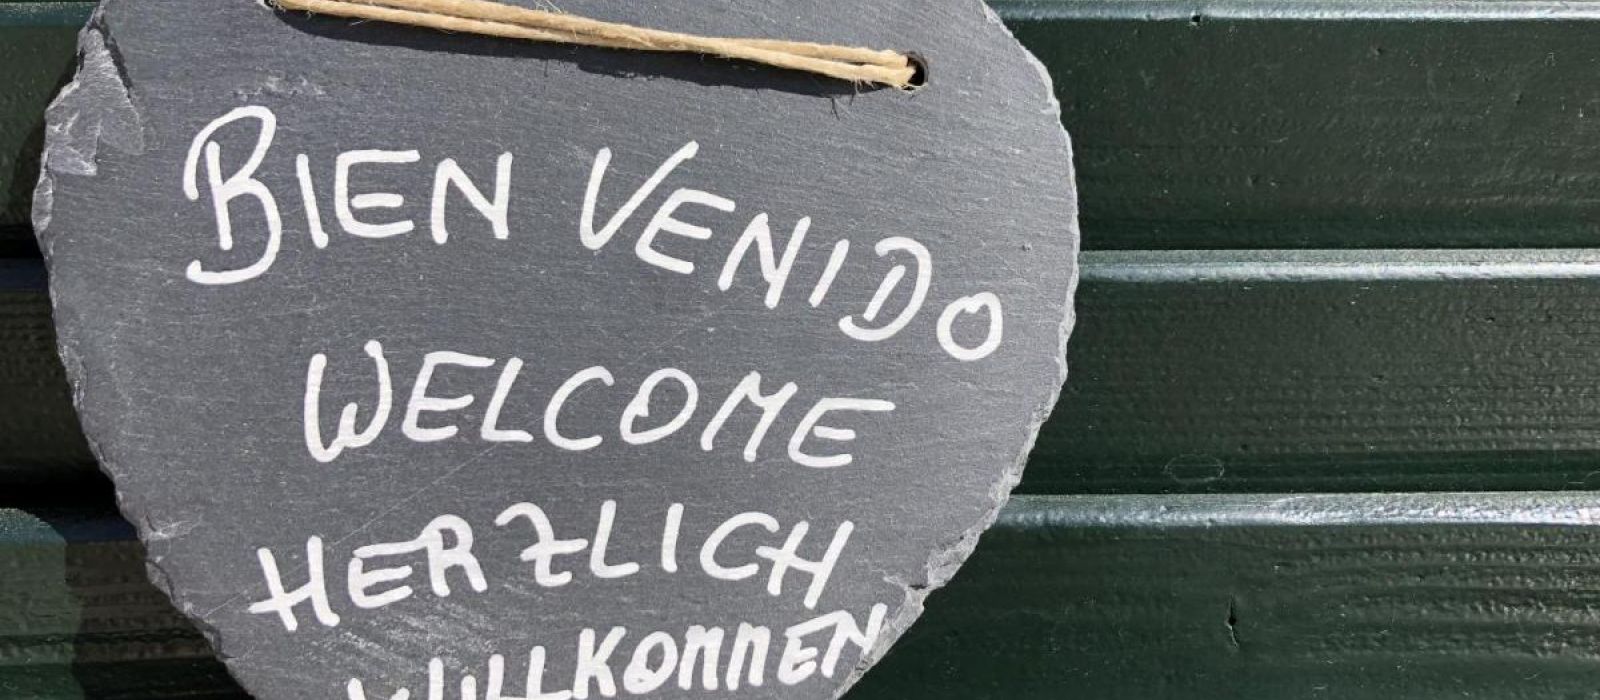 BIEN VENIDO
WELCOME
HERZLICH
WILLKOMMEN